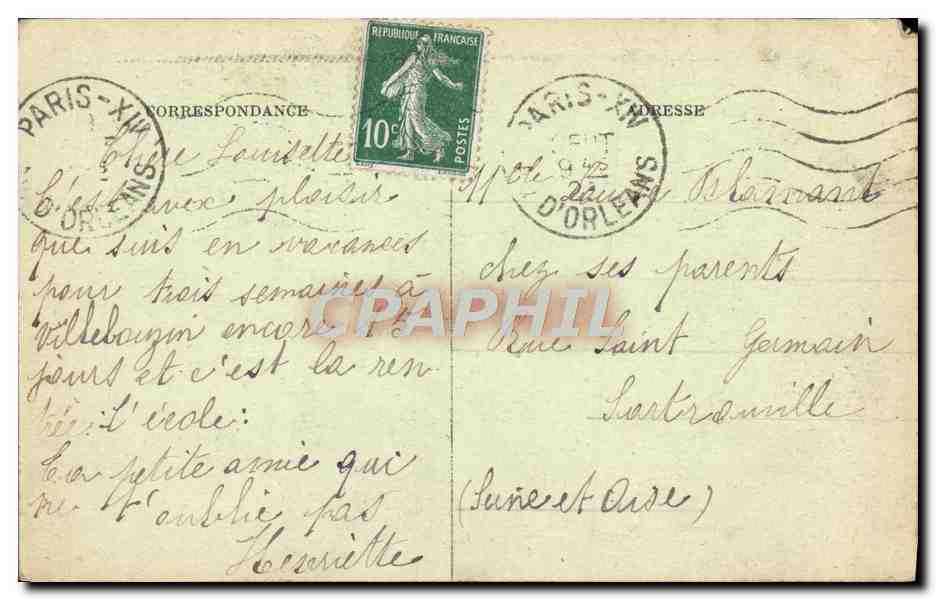 CORRESPONDANCE
Chère Louisette
C'est avex plaisir
que suis en vacances
pour trois semaines à
Villebougin encore 15
jours et c'est la ren
trée: L'école:
Ta petite amie qui
ne t'oublie pas
Henriette
RÉPUBLIQUE FRANÇAISE
10c
POSTES
PARIS-XIV
D'ORLEANS
PARIS-XIV
SEPT
D'ORLEANS
ADRESSE
Mlle
chez ses parents
Rue Saint Germain
Sartrouville
(Seine et Oise)
CPAPHIL